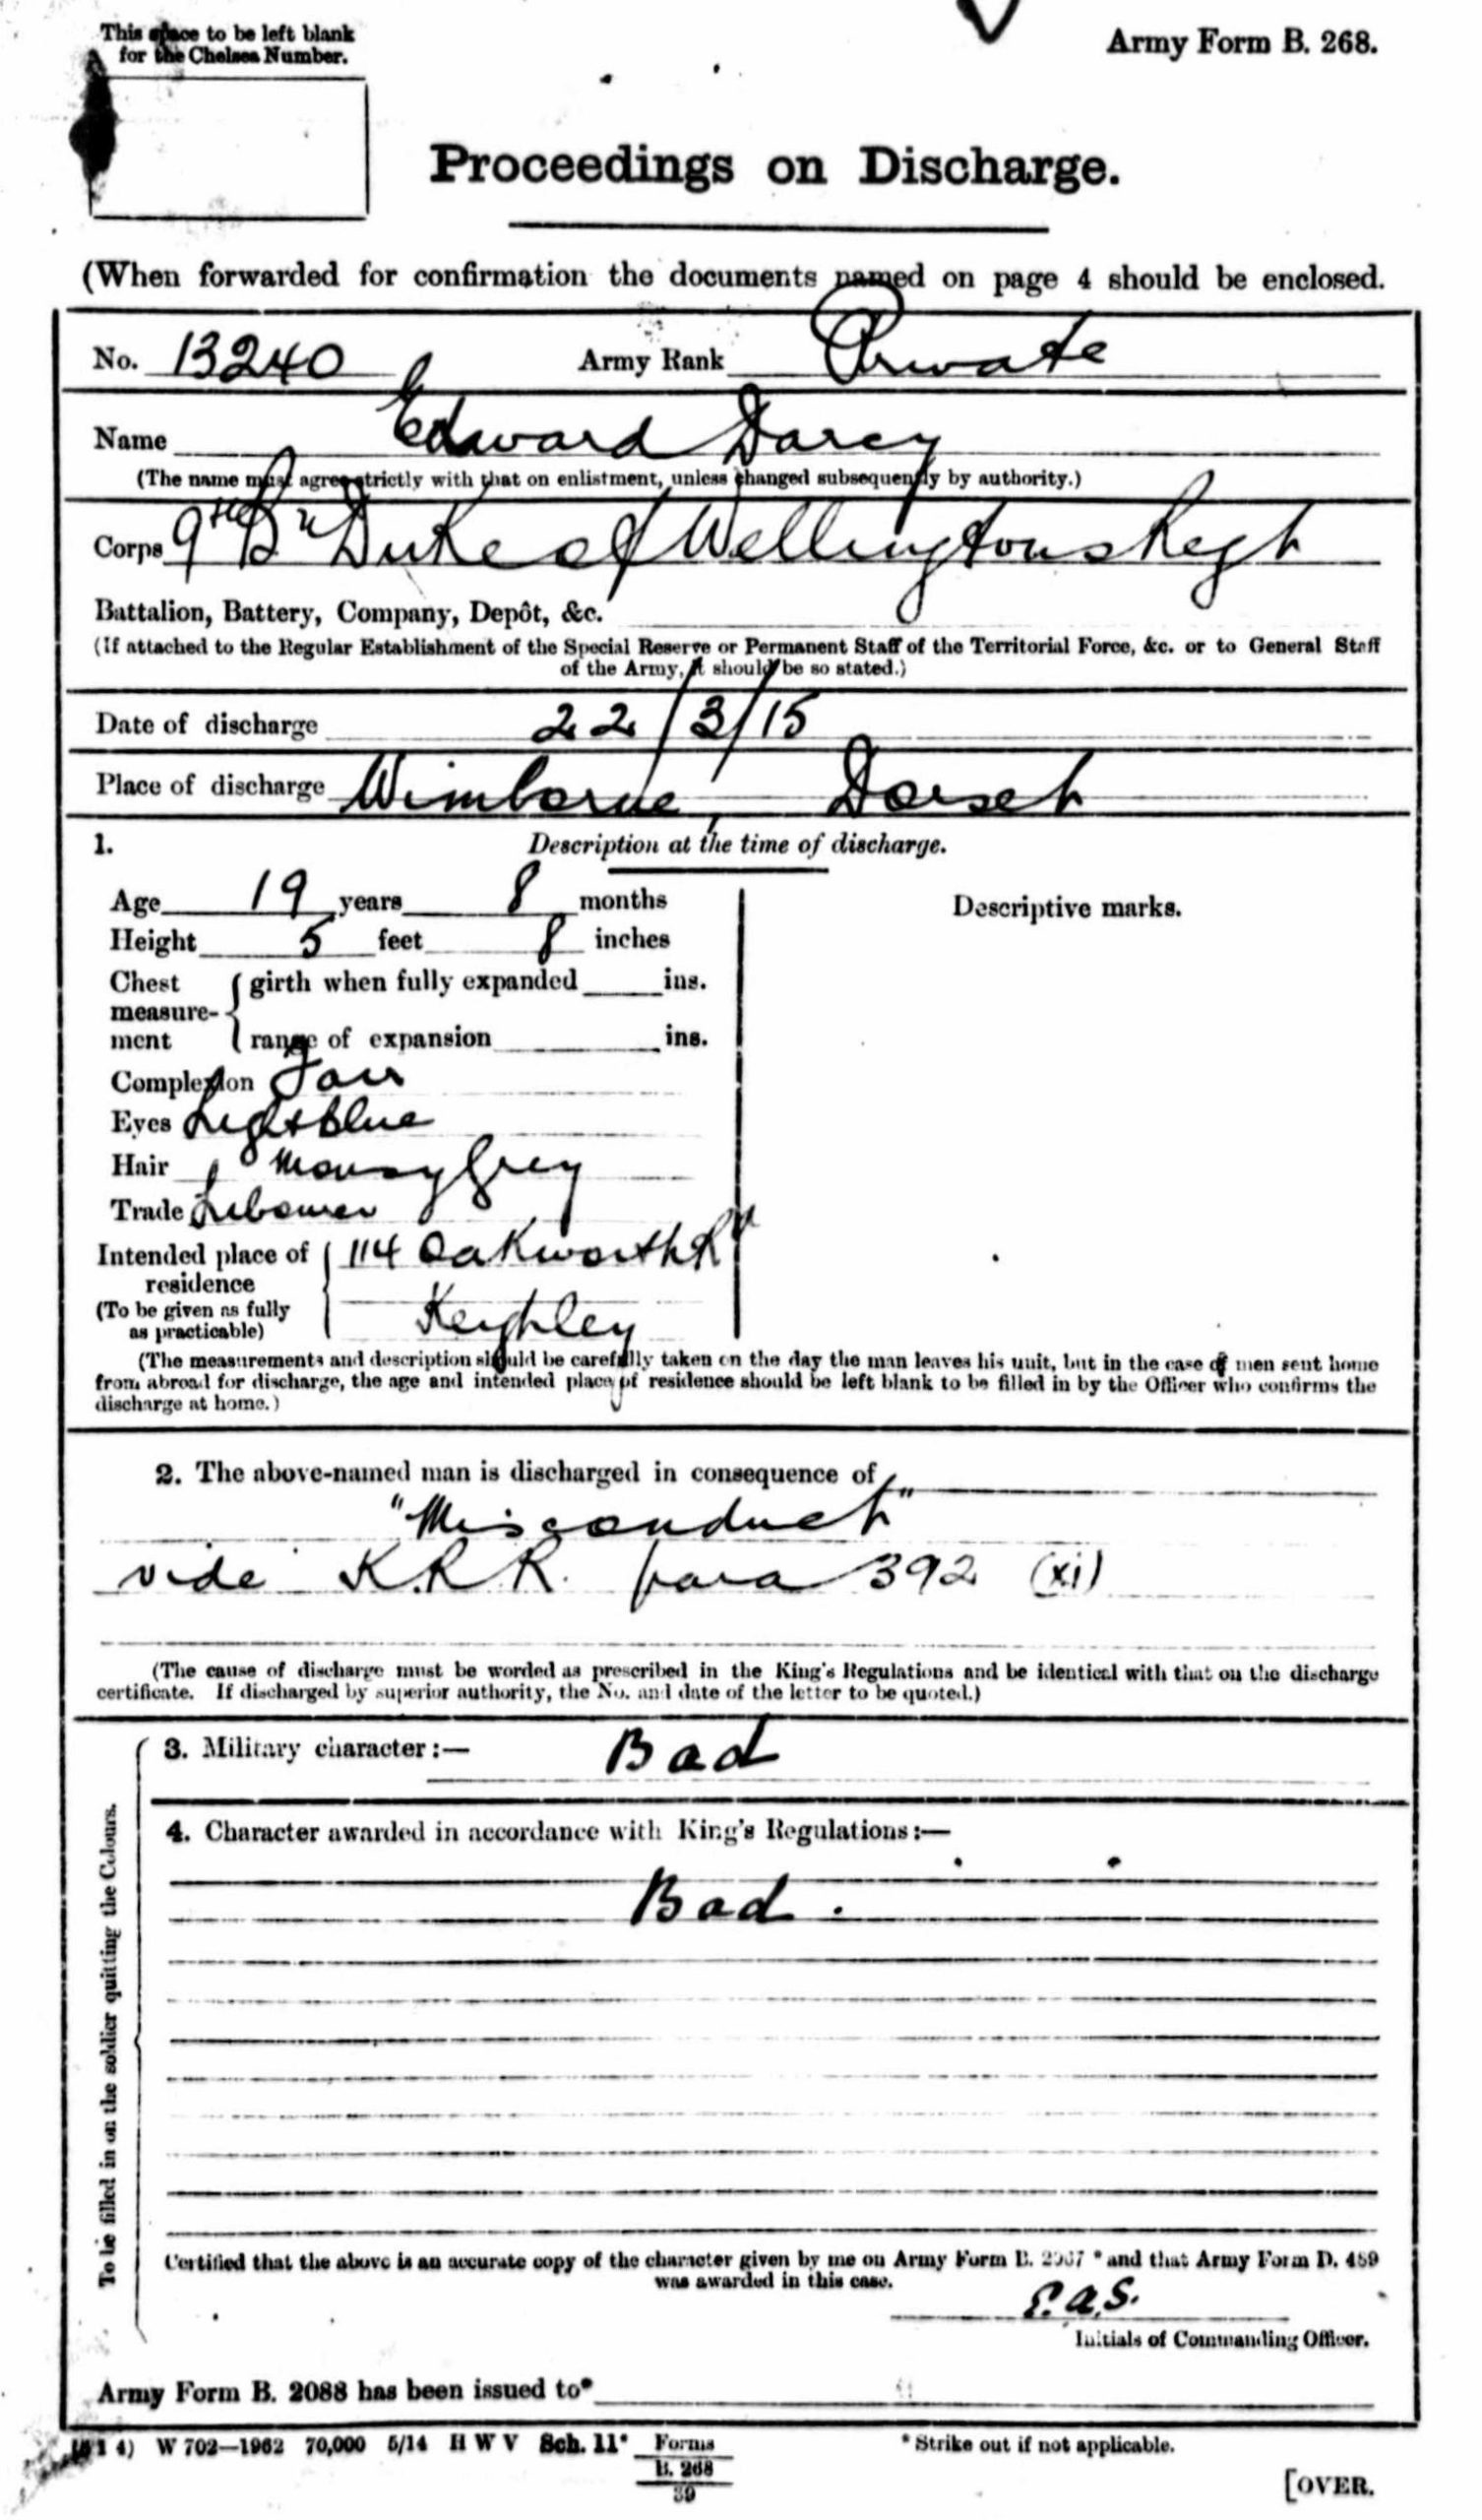 This space to be left blank
for the Chelsea Number.
Army Form B. 268.
Proceedings on Discharge.
(When forwarded for confirmation the documents named on page 4 should be enclosed.
No. 13240 Army Rank Private
Name Edward Darcy
(The name must agree strictly with that on enlistment, unless changed subsequently by authority.)
Corps 9th Bn Duke of Wellingtons Regt
Battalion, Battery, Company, Depôt, &c.
(If attached to the Regular Establishment of the Special Reserve or Permanent Staff of the Territorial Force, &c. or to General Staff
of the Army, it should be so stated.)
Date of discharge 22/3/15
Place of discharge Wimborne, Dorset
1. Description at the time of discharge.
Age 19 years 8 months
Height 5 feet 8 inches
Chest measurement { girth when fully expanded ins.
range of expansion ins.
Complexion Fair
Eyes Light blue
Hair Mousy Grey
Trade Labourer
Intended place of residence 114 Oakworth Rd
(To be given as fully as practicable) Keighley
Descriptive marks.
(The measurements and description should be carefully taken on the day the man leaves his unit, but in the case of men sent home
from abroad for discharge, the age and intended place of residence should be left blank to be filled in by the Officer who confirms the
discharge at home.)
2. The above-named man is discharged in consequence of
"Misconduct"
vide K.R.R. para 392 (xi)
(The cause of discharge must be worded as prescribed in the King's Regulations and be identical with that on the discharge
certificate. If discharged by superior authority, the No. and date of the letter to be quoted.)
To be filled in on the soldier quitting the Colours.
3. Military character:— Bad
4. Character awarded in accordance with King's Regulations:—
Bad.
Certified that the above is an accurate copy of the character given by me on Army Form B. 2067 * and that Army Form D. 489
was awarded in this case.
E.A.S.
Initials of Commanding Officer.
Army Form B. 2088 has been issued to*
4) W 702—1962 70,000 5/14 H W V Sch. 11* Forms
B. 268
39
* Strike out if not applicable.
[OVER.